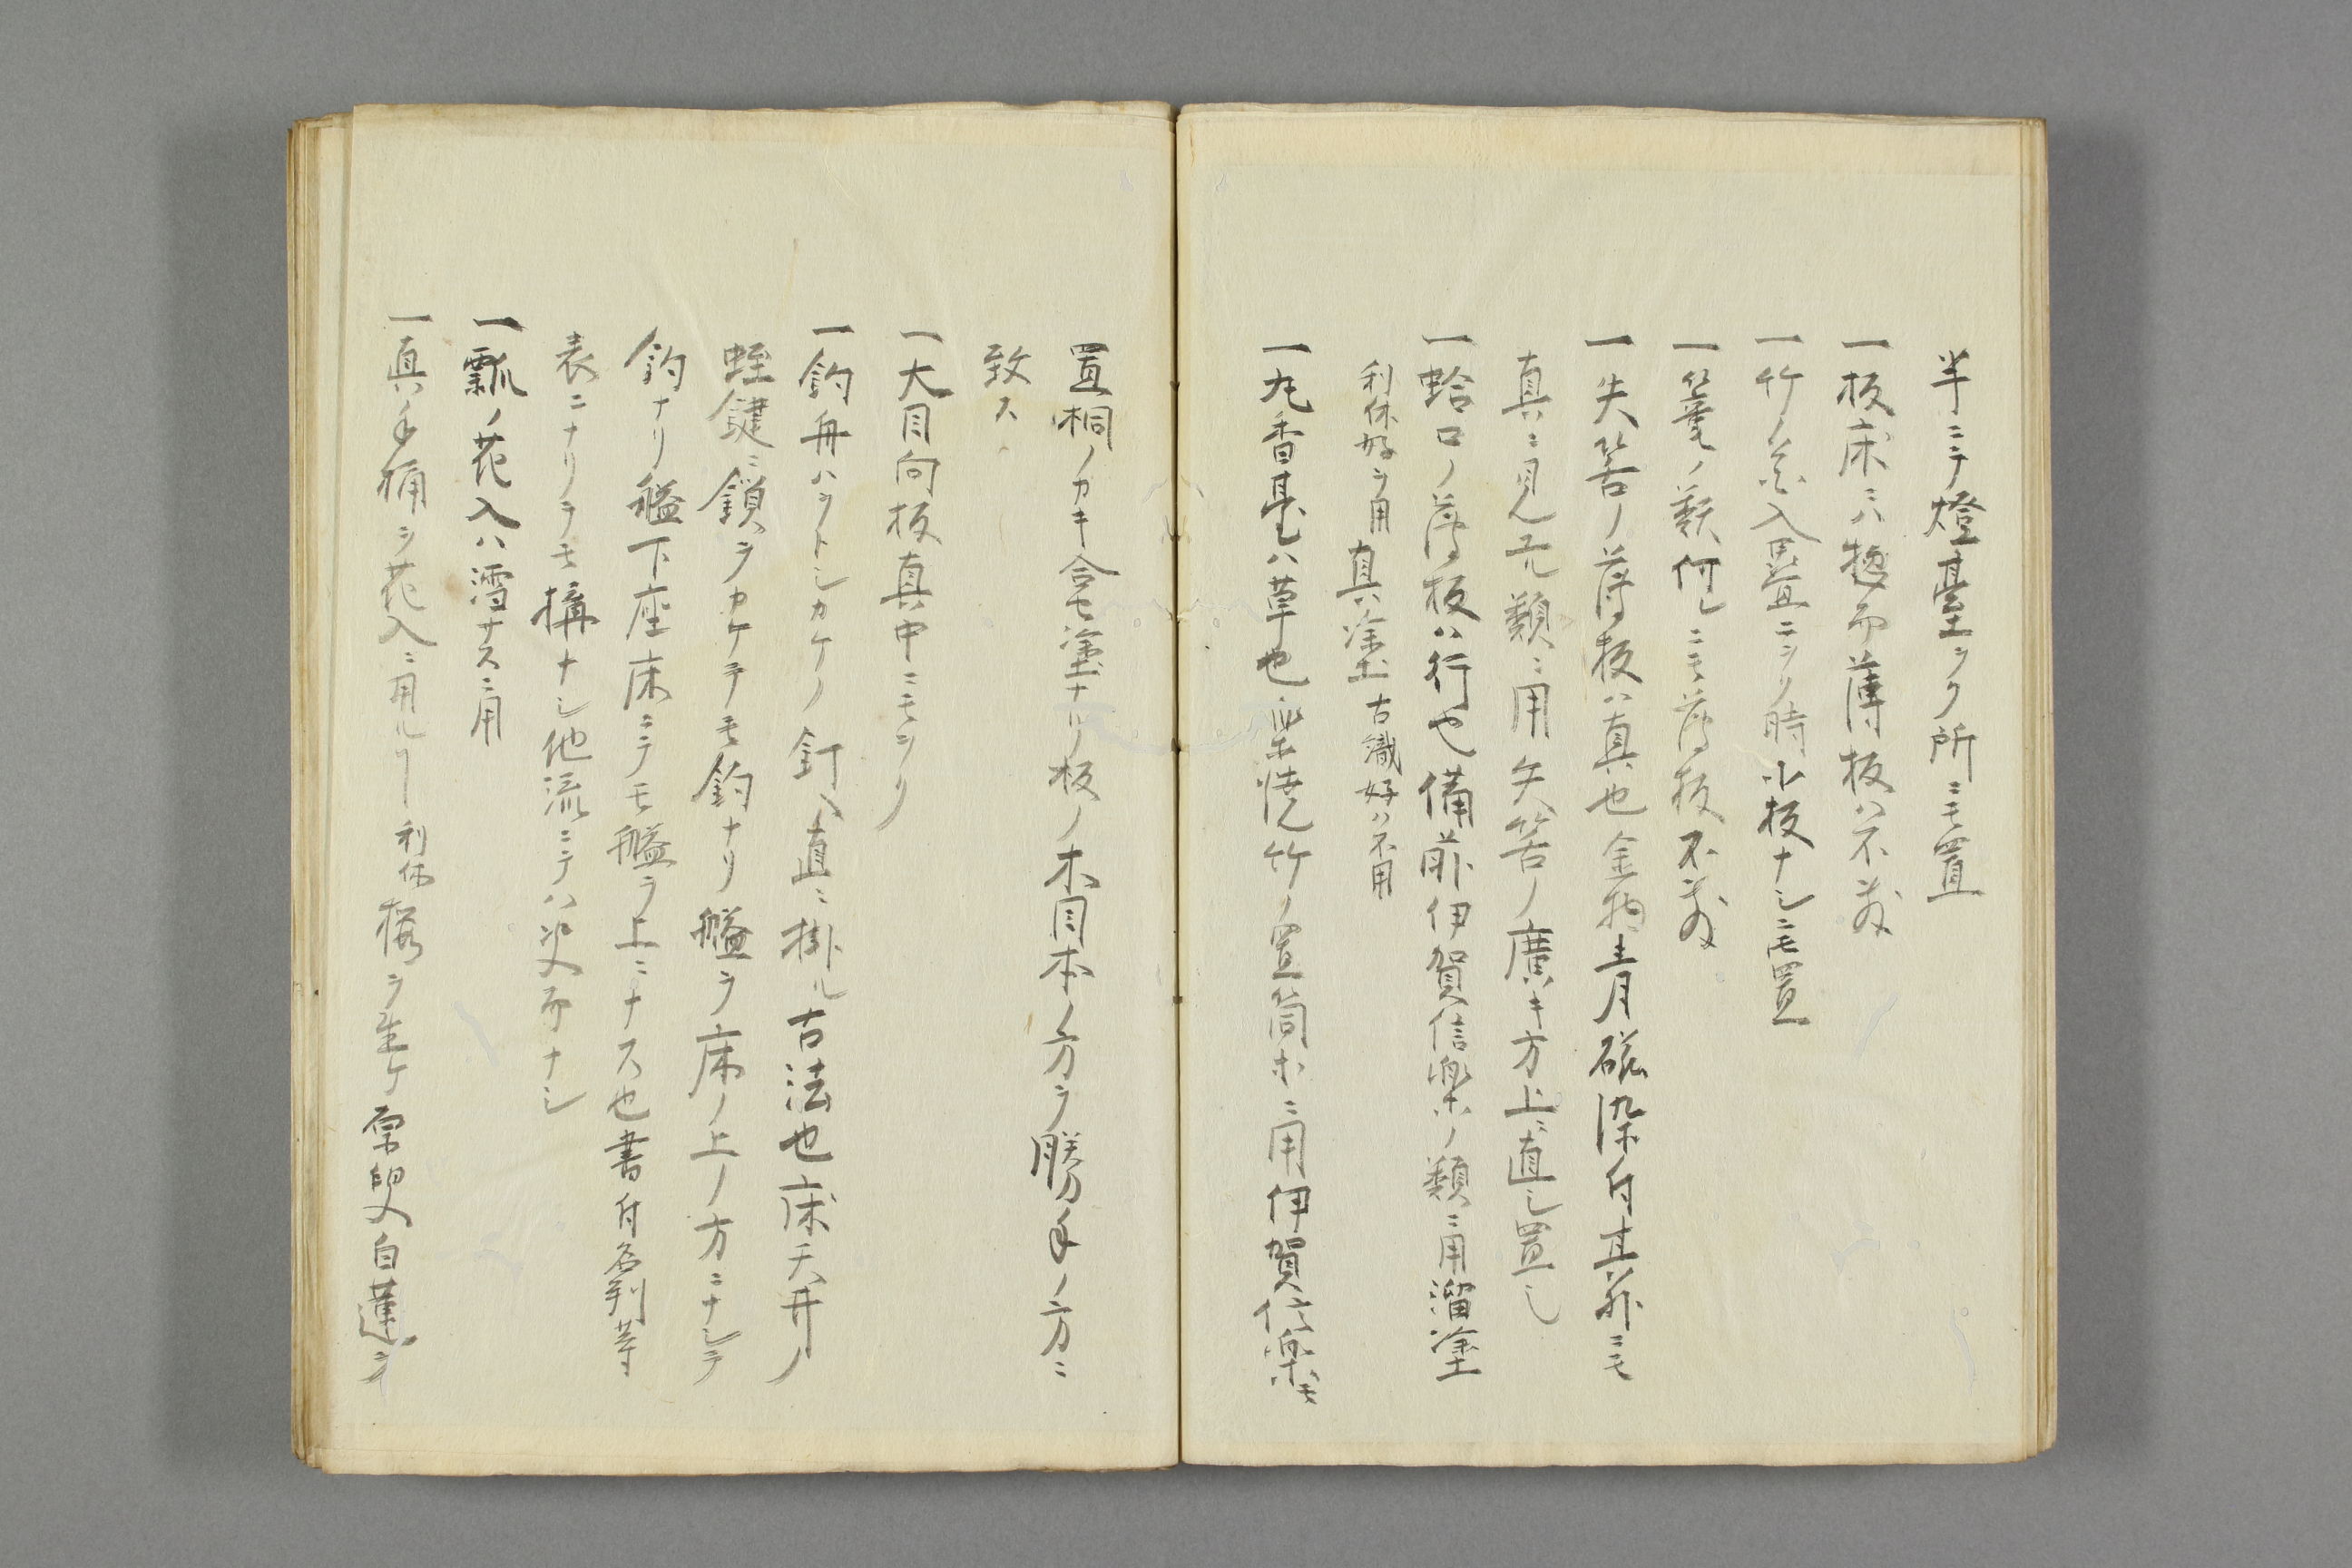 半ニテ燈臺ヲク所ニモ置
一板床ニハ惣而薄板ハ不敷
一竹ノ花入畳ニヲク時小板ナシニモ置
一籠ノ類何レニモ薄板不敷
一矢筈ノ薄板ハ真也金物青磁染付其外ニモ
真ニ見元類ニ用矢筈ノ廣キ方上ニ直シ置ヘシ
一蛤口ノ薄板ハ行也備前伊賀信楽ホノ類ニ用溜塗
利休好ヲ用真塗古織好ハ不用
一丸香臺ハ草也楽焼竹ノ置筒ホニ用伊賀信楽モ
置桐ノカキ合セ塗ナリ板ノ木目本ノ方ヲ勝手ノ方ニ
致ス
一大目向板真中ニモヲク
一釣舟ハヲトシカケノ釘ヘ直ニ掛ル古法也床天井ノ
蛭鍵ニ鎖ヲカケテモ釣ナリ艫ヲ床ノ上ノ方ニナシテ
釣ナリ艫下座床ニテモ艫ヲ上ニナス也書付名判等
表ニナリテモ搆ナシ他流ニテハ必而ナシ
一瓢ノ花入ハ濡サスニ用
一真ノ手桶ヲ花入ニ用ルヿ利休桜ヲ生ケ原叟白蓮ヲ